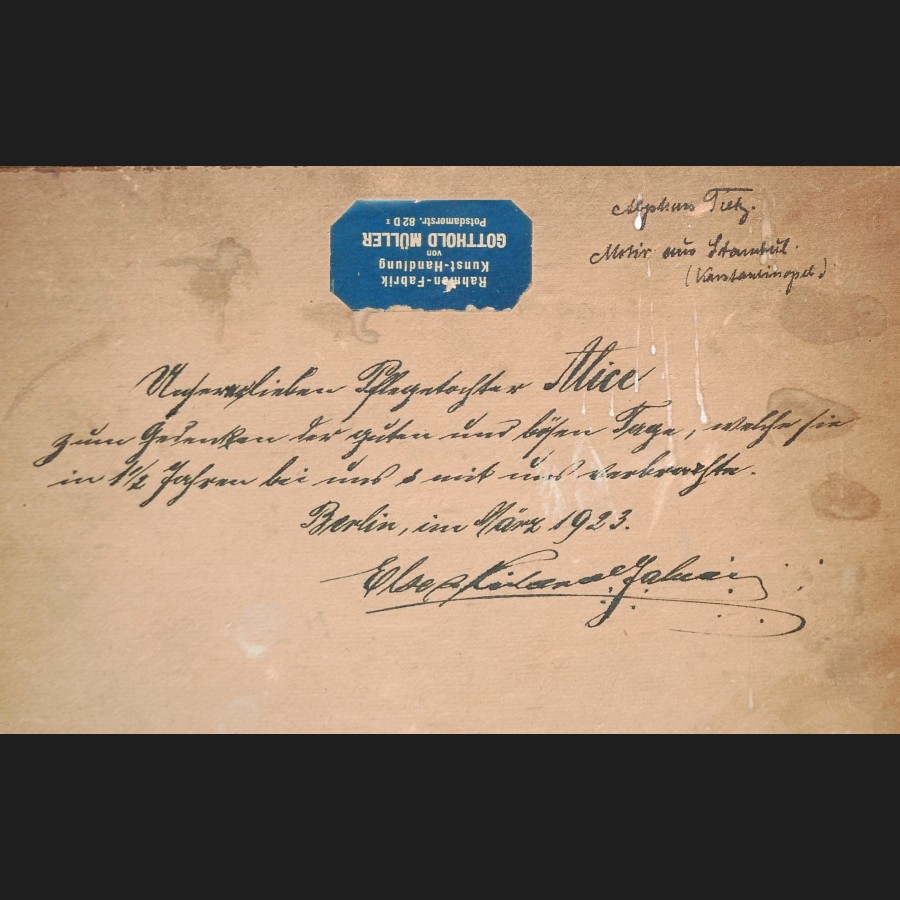 Rahmen-Fabrik
Kunst-Handlung
von
GOTTHOLD MÜLLER
Potsdamerstr. 82 D
Alphons Tietz.
Motiv aus Stambul.
(Konstantinopel)
Unserer lieben Pflegetochter Alice
zum Gedenken der guten und bösen Tage, welche sie
in 1½ Jahren bei uns & mit uns verbrachte.
Berlin, im März 1923.
Else &